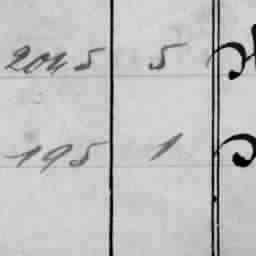 2045 5
195 1